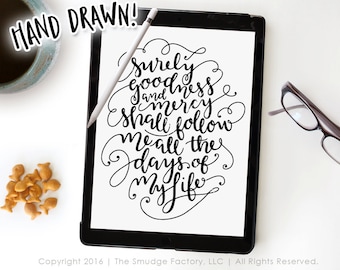 HAND DRAWN!
surely
goodness
and
mercy
shall follow
me all the
days of
my life
Copyright 2016 | The Smudge Factory, LLC | All Rights Reserved.